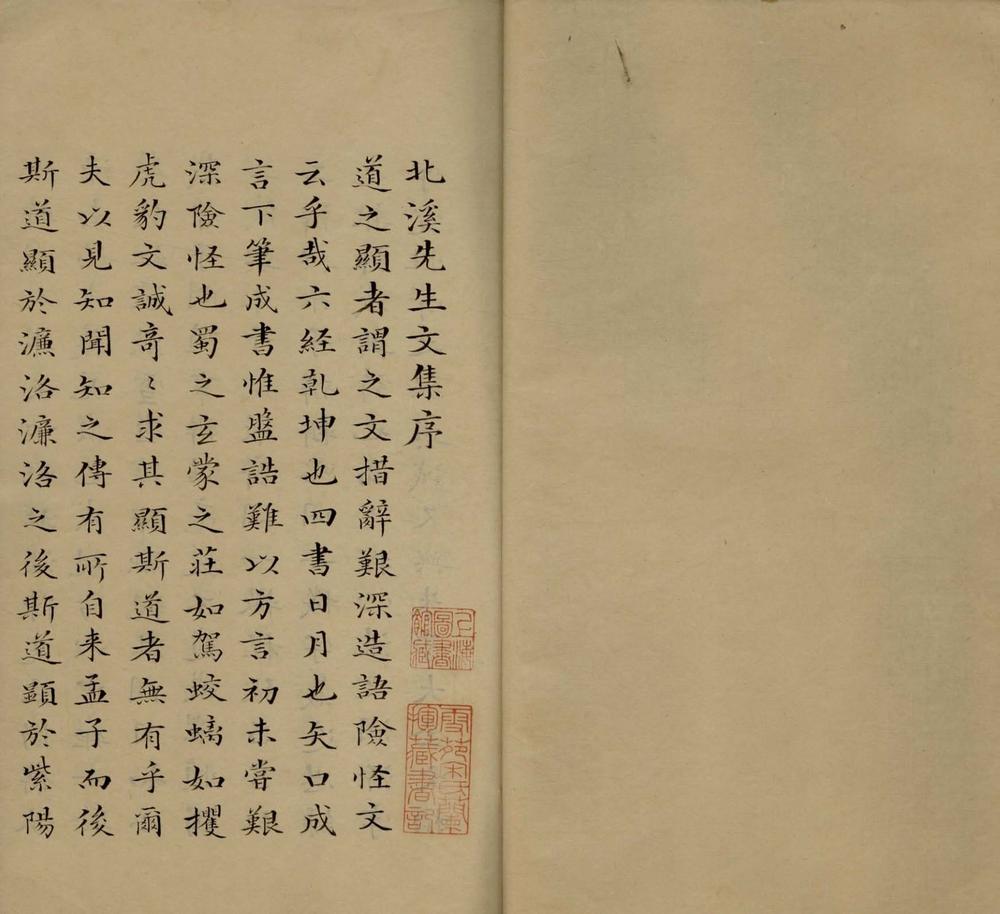 北溪先生文集序
道之顯者謂之文措辭艱深造語險怪文
云乎哉六経乾坤也四書日月也矢口成
言下筆成書惟盤誥難以方言初未甞艱
深險怪也蜀之玄蒙之莊如駕蛟螭如攫
虎豹文誠竒〻求其顯斯道者無有乎爾
夫以見知聞知之傳有所自来孟子而後
斯道顯於濂洛濂洛之後斯道顕於紫陽
上海
圖書
館藏
雪苑宋氏蘭
揮藏書記